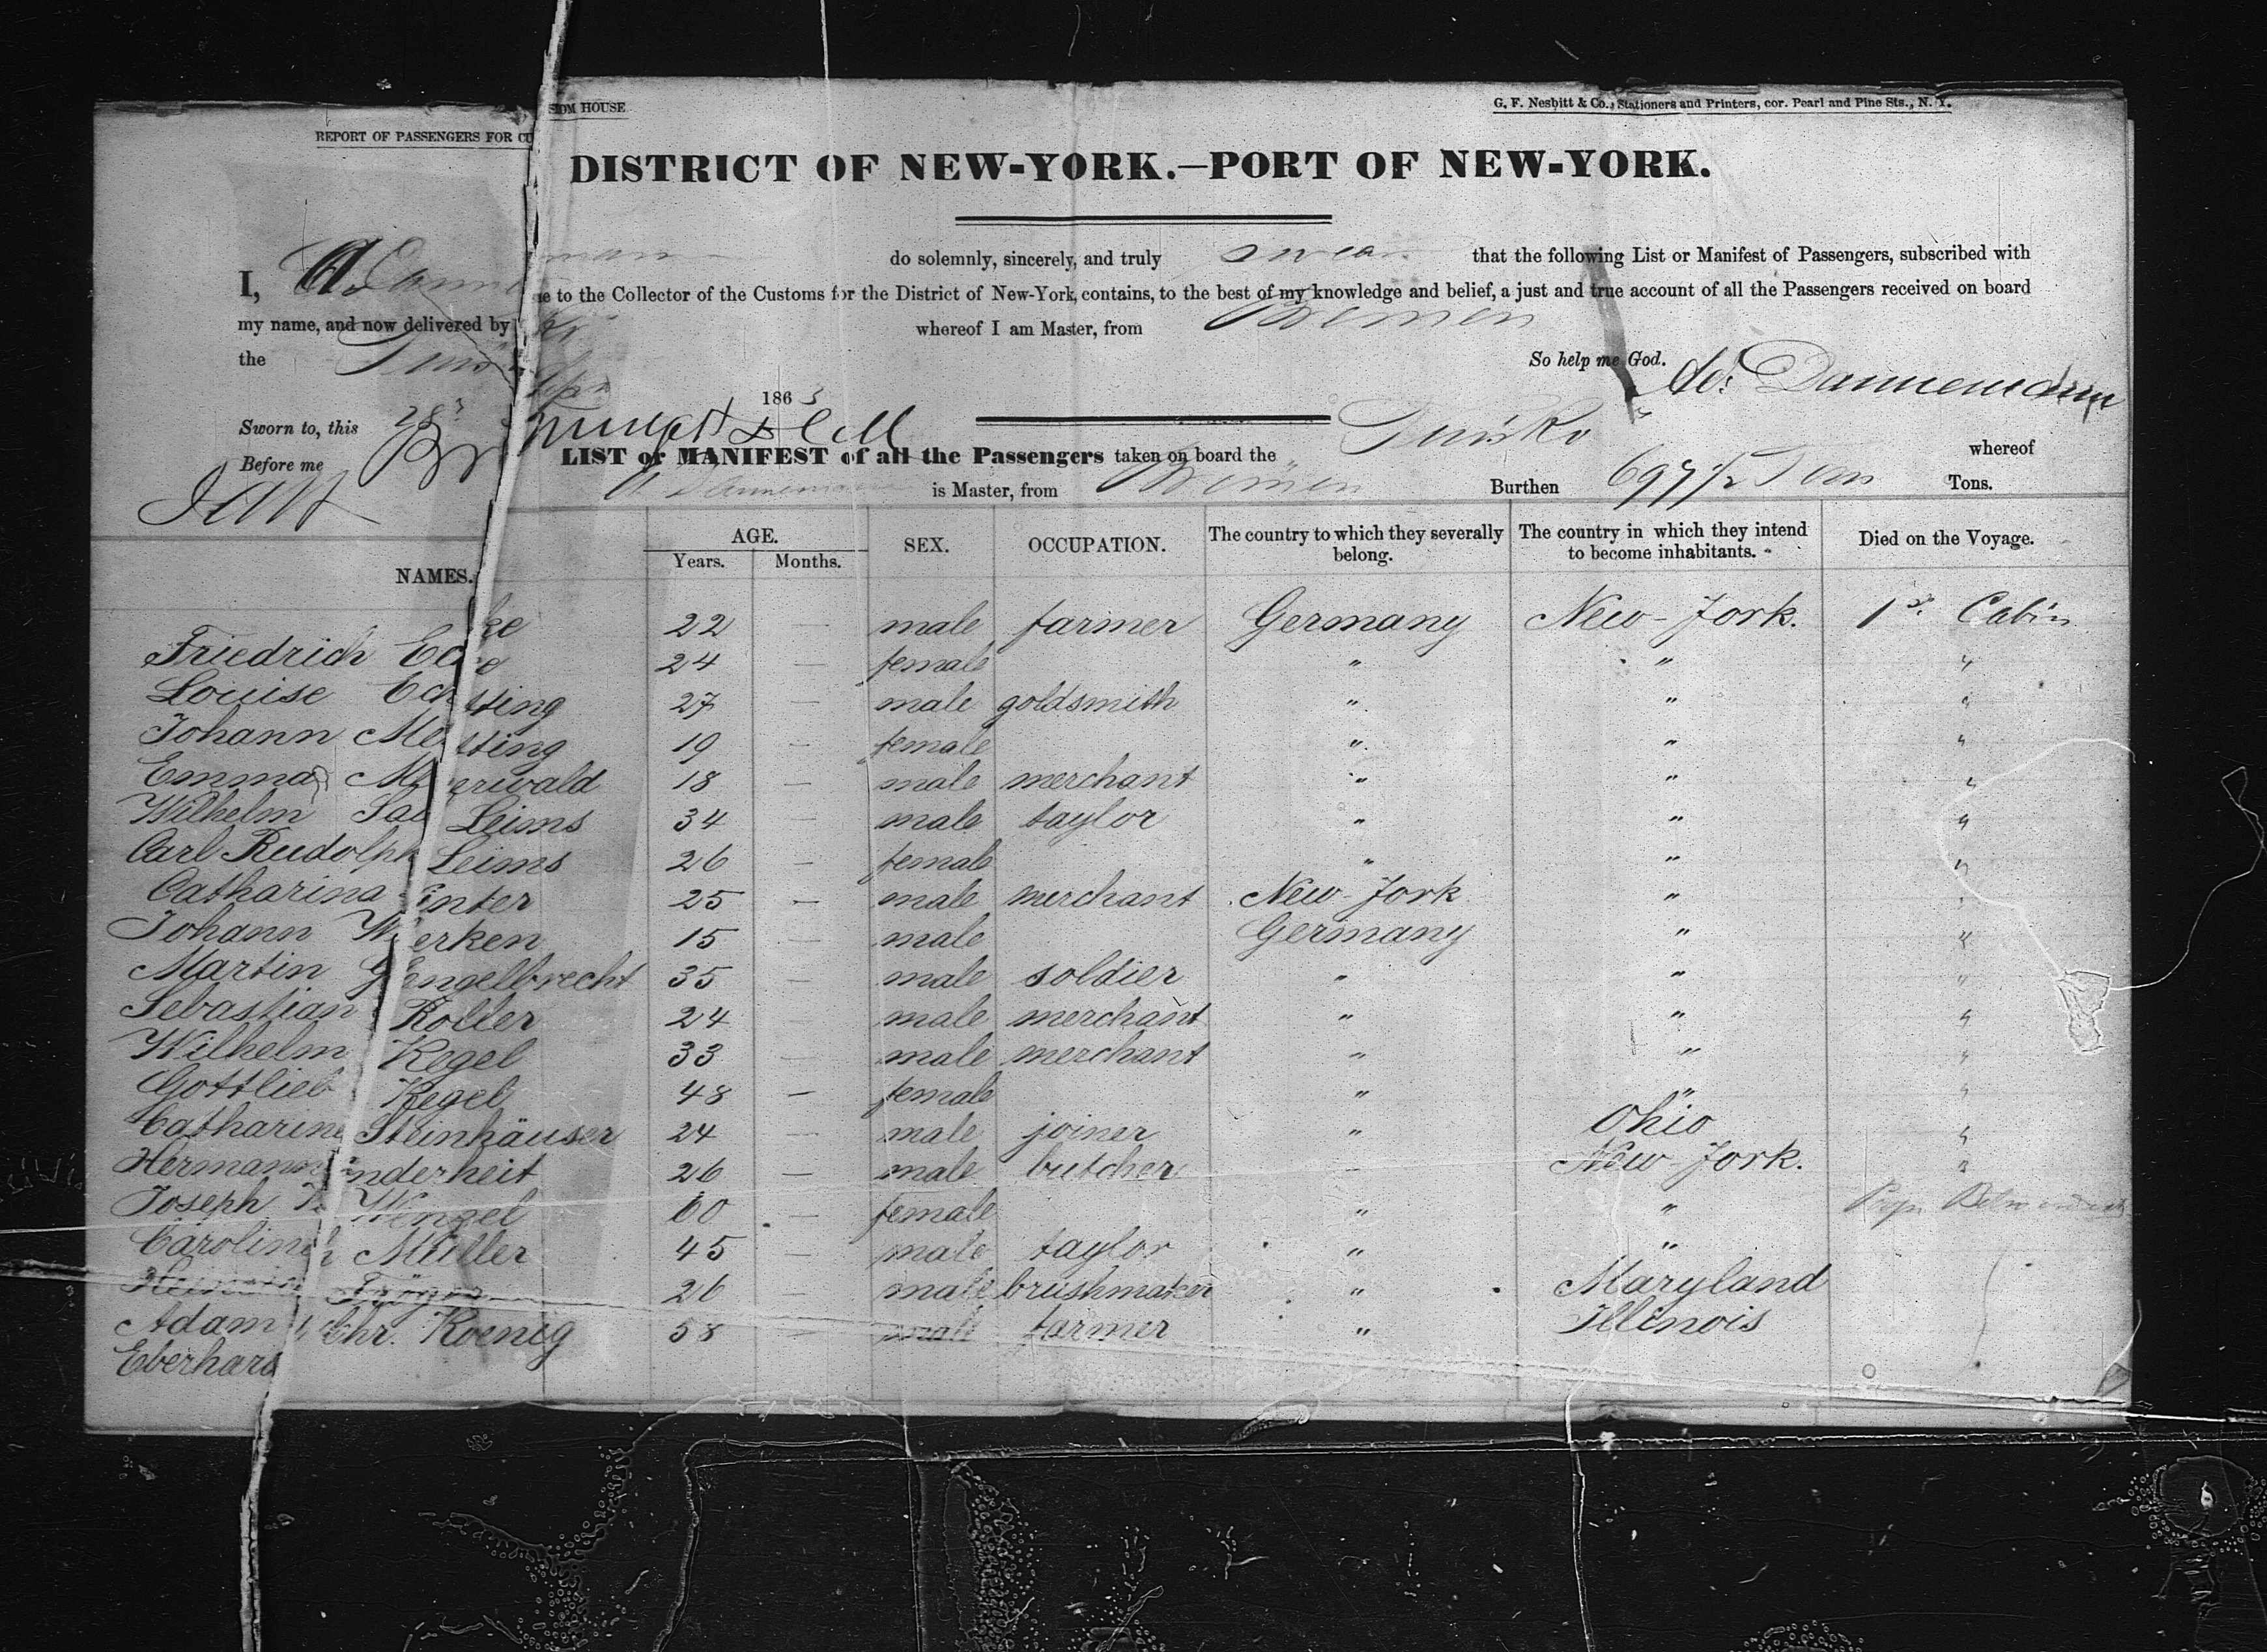 REPORT OF PASSENGERS FOR CUSTOM HOUSE
G. F. Nesbitt & Co., Stationers and Printers, cor. Pearl and Pine Sts., N. Y.
DISTRICT OF NEW-YORK.—PORT OF NEW-YORK.
I, A. Dannemann do solemnly, sincerely, and truly swear that the following List or Manifest of Passengers, subscribed with
my name, and now delivered by me to the Collector of the Customs for the District of New-York, contains, to the best of my knowledge and belief, a just and true account of all the Passengers received on board
the whereof I am Master, from Bremen
So help me God.
Sworn to, this 28 1863 Ad. Dannemann
Before me
LIST or MANIFEST of all the Passengers taken on board the whereof
A Dannemann is Master, from Bremen Burthen Tons.
NAMES. AGE. Years. Months. SEX. OCCUPATION. The country to which they severally belong. The country in which they intend to become inhabitants. Died on the Voyage.
Friedrich Ecke 22 — male farmer Germany New-Jork. 1st Cabin
Louise Ecke 24 — female " " "
Johann Metting 27 — male goldsmith " " "
Emma Metting 19 — female " " "
Wilhelm Sauerwald 18 — male merchant " " "
Carl Rudolph Leims 34 — male taylor " " "
Catharina Leims 26 — female " " "
Johann Winter 25 — male merchant New-Jork " "
Martin Gerken 15 — male Germany " "
Sebastian Engelbrecht 35 — male soldier " " "
Wilhelm Koller 24 — male merchant " " "
Gottlieb Kegel 33 — male merchant " " "
Catharine Kegel 48 — female " " "
Hermann Steinhäuser 24 — male joiner " Ohio "
Joseph Minderheit 26 — male butcher New-Jork. "
Caroline Wenzel 60 — female " "
Heinrich Müller 45 — male taylor " "
Adam 26 — male brushmaker " Maryland
Eberhard Chr. Koenig 58 — male farmer " Illinois